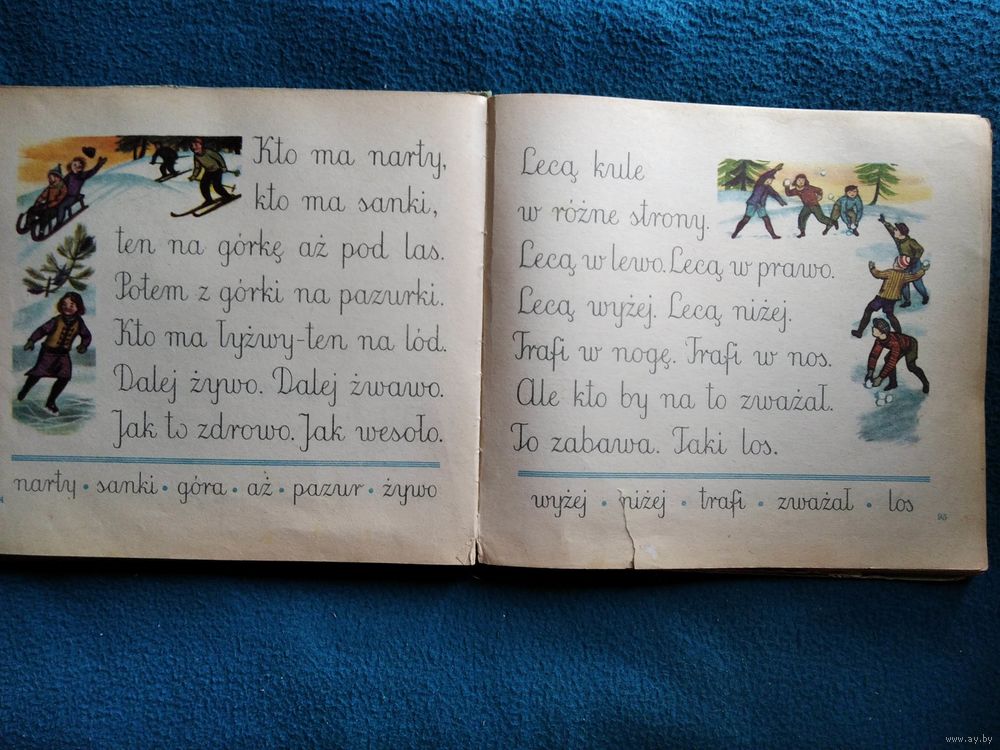 Kto ma narty,
kto ma sanki,
ten na górkę aż pod las.
Potem z górki na pazurki.
Kto ma łyżwy-ten na lód.
Dalej żywo. Dalej żwawo.
Jak to zdrowo. Jak wesoło.
narty • sanki • góra • aż • pazur • żywo
Lecą kule
w różne strony.
Lecą w lewo. Lecą w prawo.
Lecą wyżej. Lecą niżej.
Trafi w nogę. Trafi w nos.
Ale kto by na to zważał.
To zabawa. Taki los.
wyżej • niżej • trafi • zważał • los
95
www.ay.by